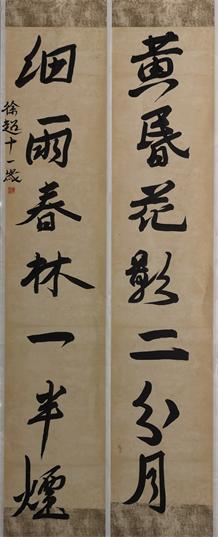 黄昏花影二分月
细雨春林一半煙
徐超十一歲